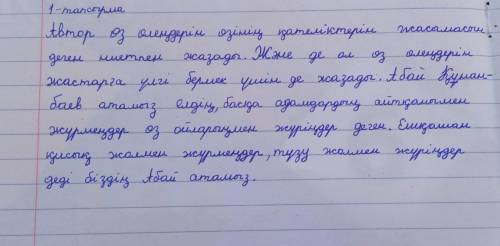 1-тапсырма
Автор өз өлеңдерін өзінің қателіктерін жасамасын
деген ниетпен жазады. Жже де ол өз өлеңдерін
жастарға үлгі бермек үшін де жазады. Абай Құнан-
баев атамыз елдің, басқа адамдардың айтқанымен
жүрмеңдер өз ойларыңмен жүріңдер деген. Ешқашан
қисық жолмен жүрмеңдер, түзу жолмен жүріңдер
деді біздің Абай атамыз.